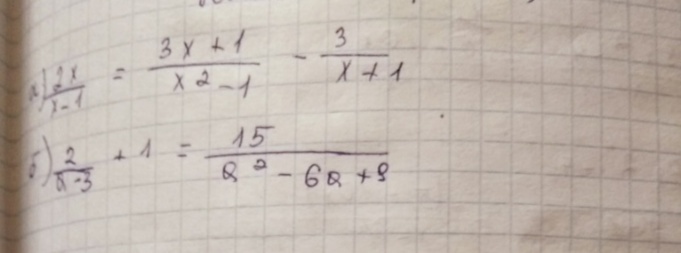 а) 2x/x-1 = 3x+1/x2-1 - 3/x+1
б) 2/a-3 + 1 = 15/a2-6a+9